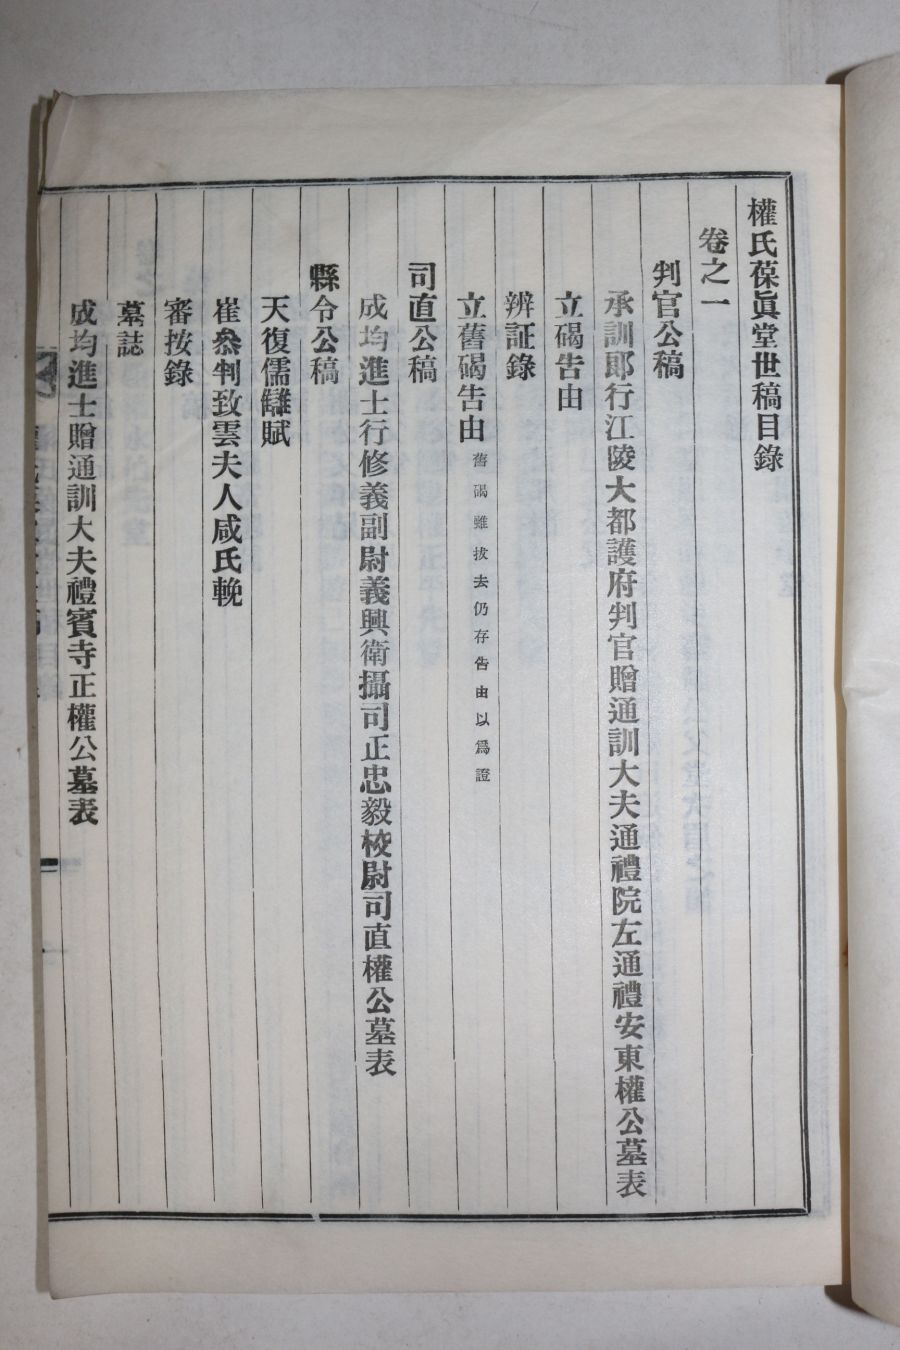 權氏葆眞堂世稿目錄
卷之一
判官公稿
承訓郞行江陵大都護府判官贈通訓大夫通禮院左通禮安東權公墓表
立碣告由
辨証錄
立舊碣告由 舊碣雖拔去仍存告由以爲證
司直公稿
成均進士行修義副尉義興衛攝司正忠毅校尉司直權公墓表
縣令公稿
天復儒讎賦
崔叅判致雲夫人咸氏輓
審按錄
墓誌
成均進士贈通訓大夫禮賓寺正權公墓表